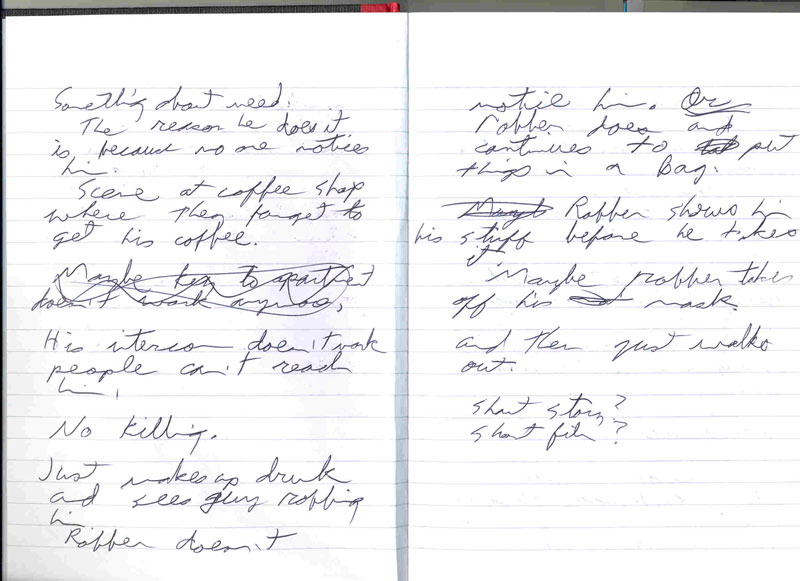 Something about need.
The reason he does it
is because no one notices
him.
Scene at coffee shop
where they forget to
get his coffee.
Maybe key to apartment
doesn't work anymore,
His intercom doesn't work
people can't reach
him.
No killing.
Just wakes up drunk
and sees guy robbing
him
Robber doesn't
notice him. Or
robber does and
continues to put
things in a Bag.
Maybe Robber shows him
his stuff before he takes
it
Maybe robber takes
off his mask.
and then just walks
out.
Short story?
Short film?